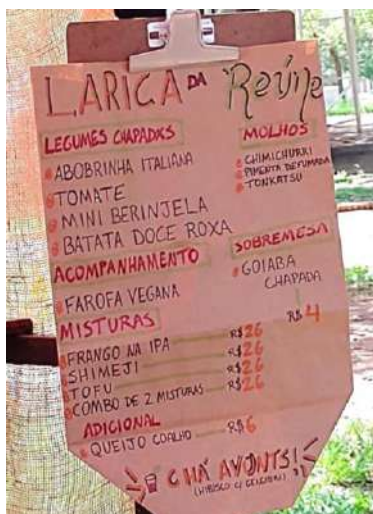 LARICA DA Revine
LEGUMES CHAPADXS
ABOBRINHA ITALIANA
TOMATE
MINI BERINJELA
BATATA DOCE ROXA
ACOMPANHAMENTO
FAROFA VEGANA
MISTURAS
FRANGO NA IPA R$26
SHIMEJI R$26
TOFU R$26
COMBO DE 2 MISTURAS R$26
ADICIONAL
QUEIJO COALHO R$6
MOLHOS
CHIMICHURRI
PIMENTA DEFUMADA
TONKATSU
SOBREMESA
GOIABA
CHAPADA
R$4
CHÁ AVONTS!
(HIBISCO C/